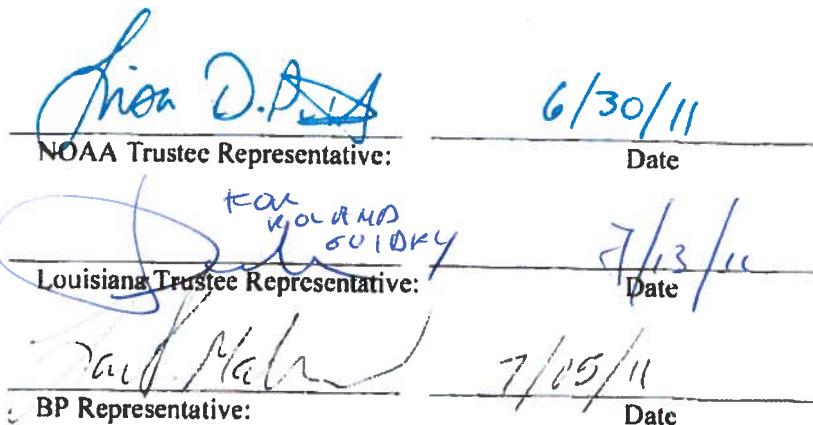 Lisa D. 6/30/11
NOAA Trustee Representative: Date
FOR
ROLAND
GUIDRY
7/13/11
Louisiana Trustee Representative: Date
7/05/11
BP Representative: Date